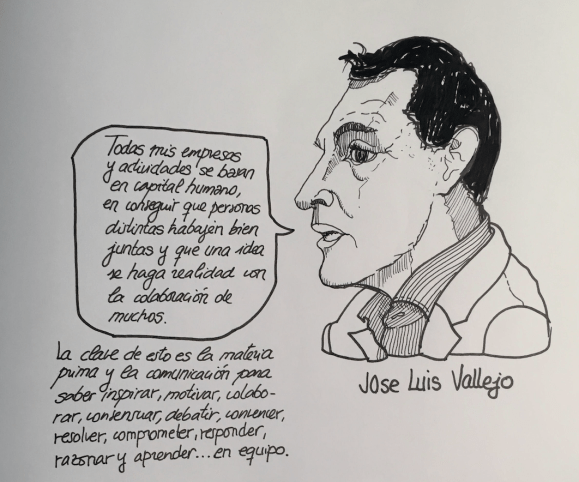 Todas mis empresas
y actividades se basan
en capital humano,
en conseguir que personas
distintas trabajen bien
juntas y que una idea
se haga realidad con
la colaboración de
muchos.
La clave de esto es la materia
prima y la comunicación para
saber inspirar, motivar, colabo-
rar, consensuar, debatir, convencer,
resolver, comprometer, responder,
razonar y aprender... en equipo.
Jose Luis Vallejo